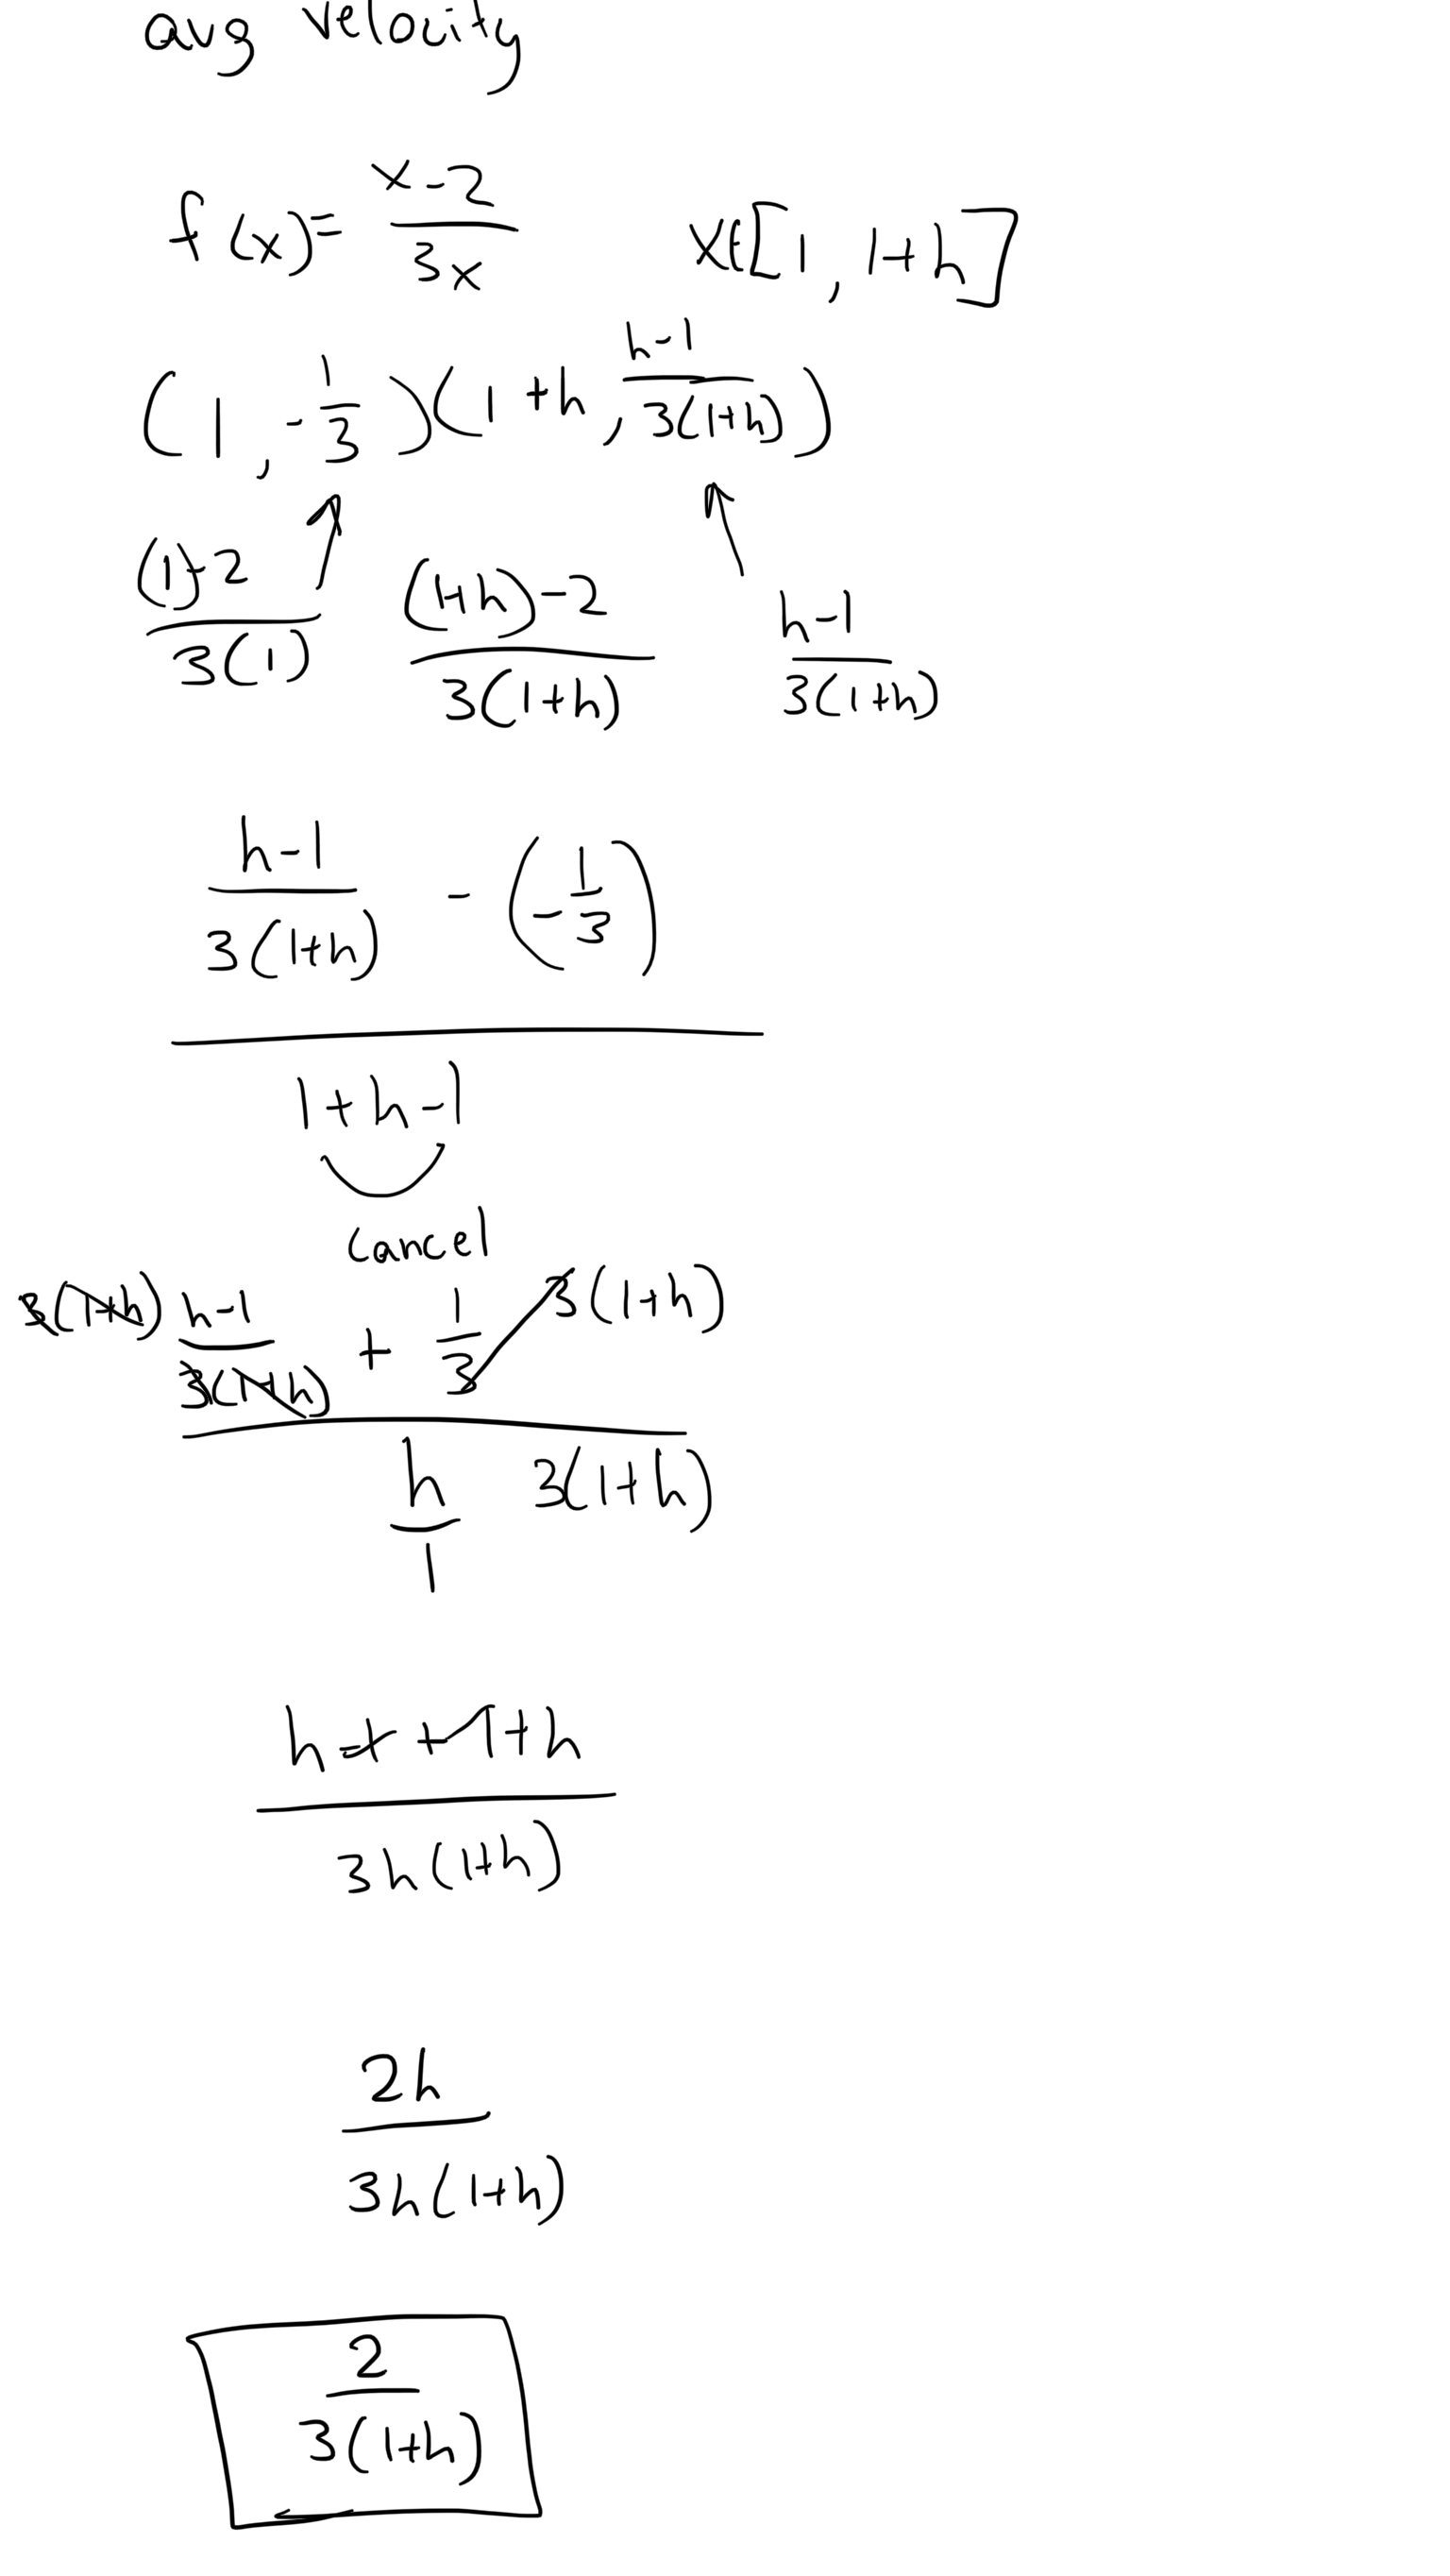 avg velocity
f(x) = (x-2)/(3x)   x∈[1, 1+h]
(1, -1/3)(1+h, (h-1)/(3(1+h)))
((1)-2)/(3(1))   ((1+h)-2)/(3(1+h))   (h-1)/(3(1+h))
(h-1)/(3(1+h)) - (-1/3)
1+h-1
cancel
3(1+h) (h-1)/(3(1+h)) + 1/3 3(1+h)
h/1   3(1+h)
h-1+1+h
3h(1+h)
2h
3h(1+h)
2
3(1+h)